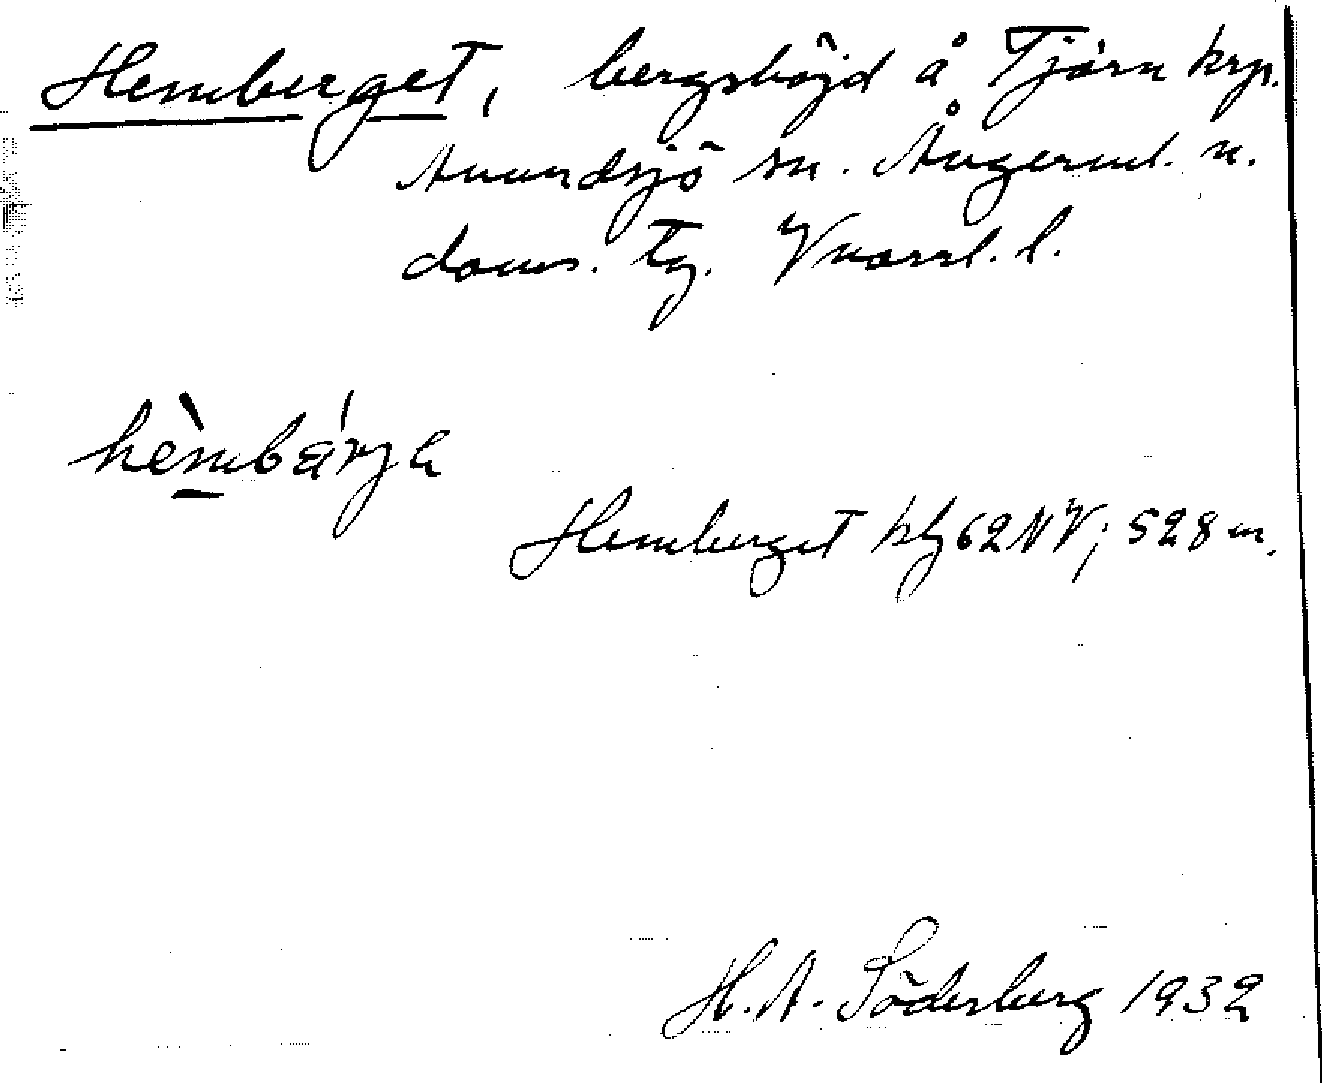 Hemberget, bergshöjd å Tjärn krp.
Anundsjö sn. Ångerml. n.
doms. tg. Vnorrl. l.
hèmbárja
Hemberget kbl 62 NV; 528 m.
H. A. Söderberg 1932